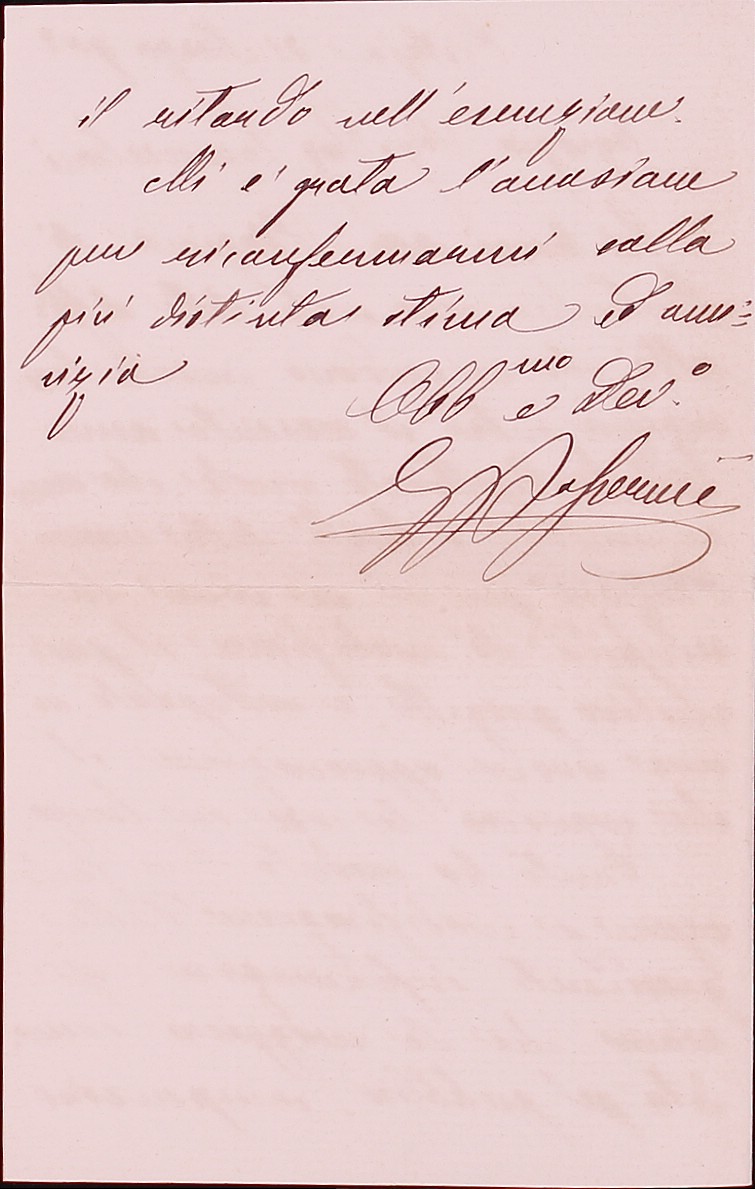 il ritardo nell'esecuzione.
Mi è grata l'occasione
per riconfermarmi colla
più distinta stima ed ami=
cizia
Obb.mo e Dev.o